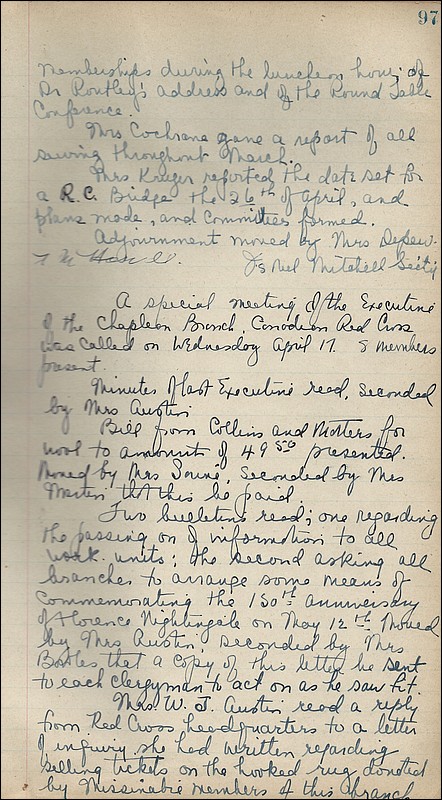 97
memberships during the luncheon hour; of
Dr Routley's address and of the Round Table
Conference.
Mrs Cochrane gave a report of all
sewing throughout March.
Mrs Kruger reported the date set for
a R.C. Bridge the 26th of April, and
plans made, and Committees formed.
Adjournment moved by Mrs Depew.
Mitchell Sec'ty
A special meeting of the Executive
of the Chapleau Branch, Canadian Red Cross
was called on Wednesday April 17. 8 members
present.
Minutes of last Executive read, seconded
by Mrs Austin.
Bill from Collins and Motters for
wool to amount of 49 50 presented.
Moved by Mrs Soune, seconded by Mrs
that this be paid.
Two bulletins read; one regarding
the passing on of information to all
work units; the second asking all
branches to arrange some means of
commemorating the 150th anniversary
of Florence Nightingale on May 12th. Moved
by Mrs Austin, seconded by Mrs
that a copy of this letter be sent
to each clergyman to act on as he saw fit.
Mrs. W. J. Austin read a reply
from Red Cross headquarters to a letter
of inquiry she had written regarding
selling tickets on the hooked rug, donated
by Missinabie members of this branch